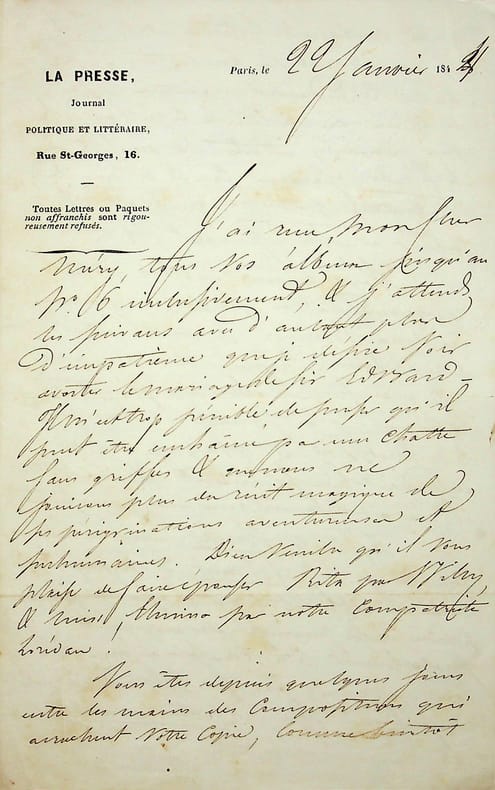 LA PRESSE,
Journal
POLITIQUE ET LITTÉRAIRE,
Rue St-Georges, 16.
Toutes Lettres ou Paquets
non affranchis sont rigou-
reusement refusés.
Paris, le 22 Janvier 184
J'ai Monsieur
Méry, tous vos album jusqu'au
N° 6 inclusivement, & j'attends
les suivans avec d'autant plus
d'impatience que je désire voir
avorter le mariage de Sir Edward
Il m'est trop pénible de penser qu'il
peut être enchaîné par une chatte
sans griffes & nous ne
jouirons plus du récit magique de
ses pérégrinations aventureuses et
surhumaines. Dieu veuille qu'il vous
plaise de faire épouser Rita par
& par notre Compatriote
Lorédan !
Vous êtes depuis quelques jours
entre les mains des Compositeurs qui
arrachent votre Copie, comme bientôt